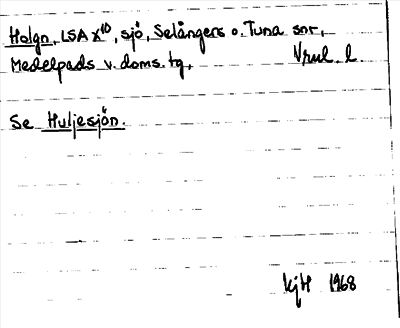 Holgn, LSA X10, sjö, Selångers o. Tuna snr,
Medelpads v. doms. tg. Vrul. l
Se Huljesjön.
KjH 1968